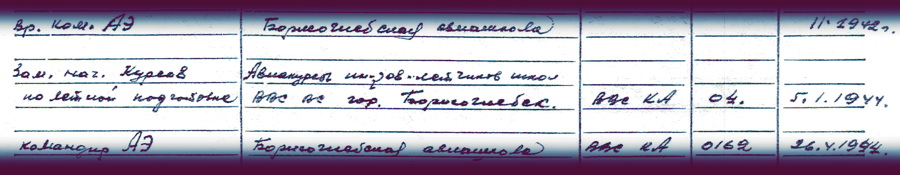 Вр. ком. АЭ Борисоглебская авиашкола 11. 1942г.
Зам. нач. Курсов Авиакурсы ин-ров-летчиков школ
по летной подготовке ВВС ВС гор. Борисоглебск. ВВС КА 04. 5.1.1944.
командир АЭ Борисоглебская авиашкола ВВС КА 0162 26.4.1944.